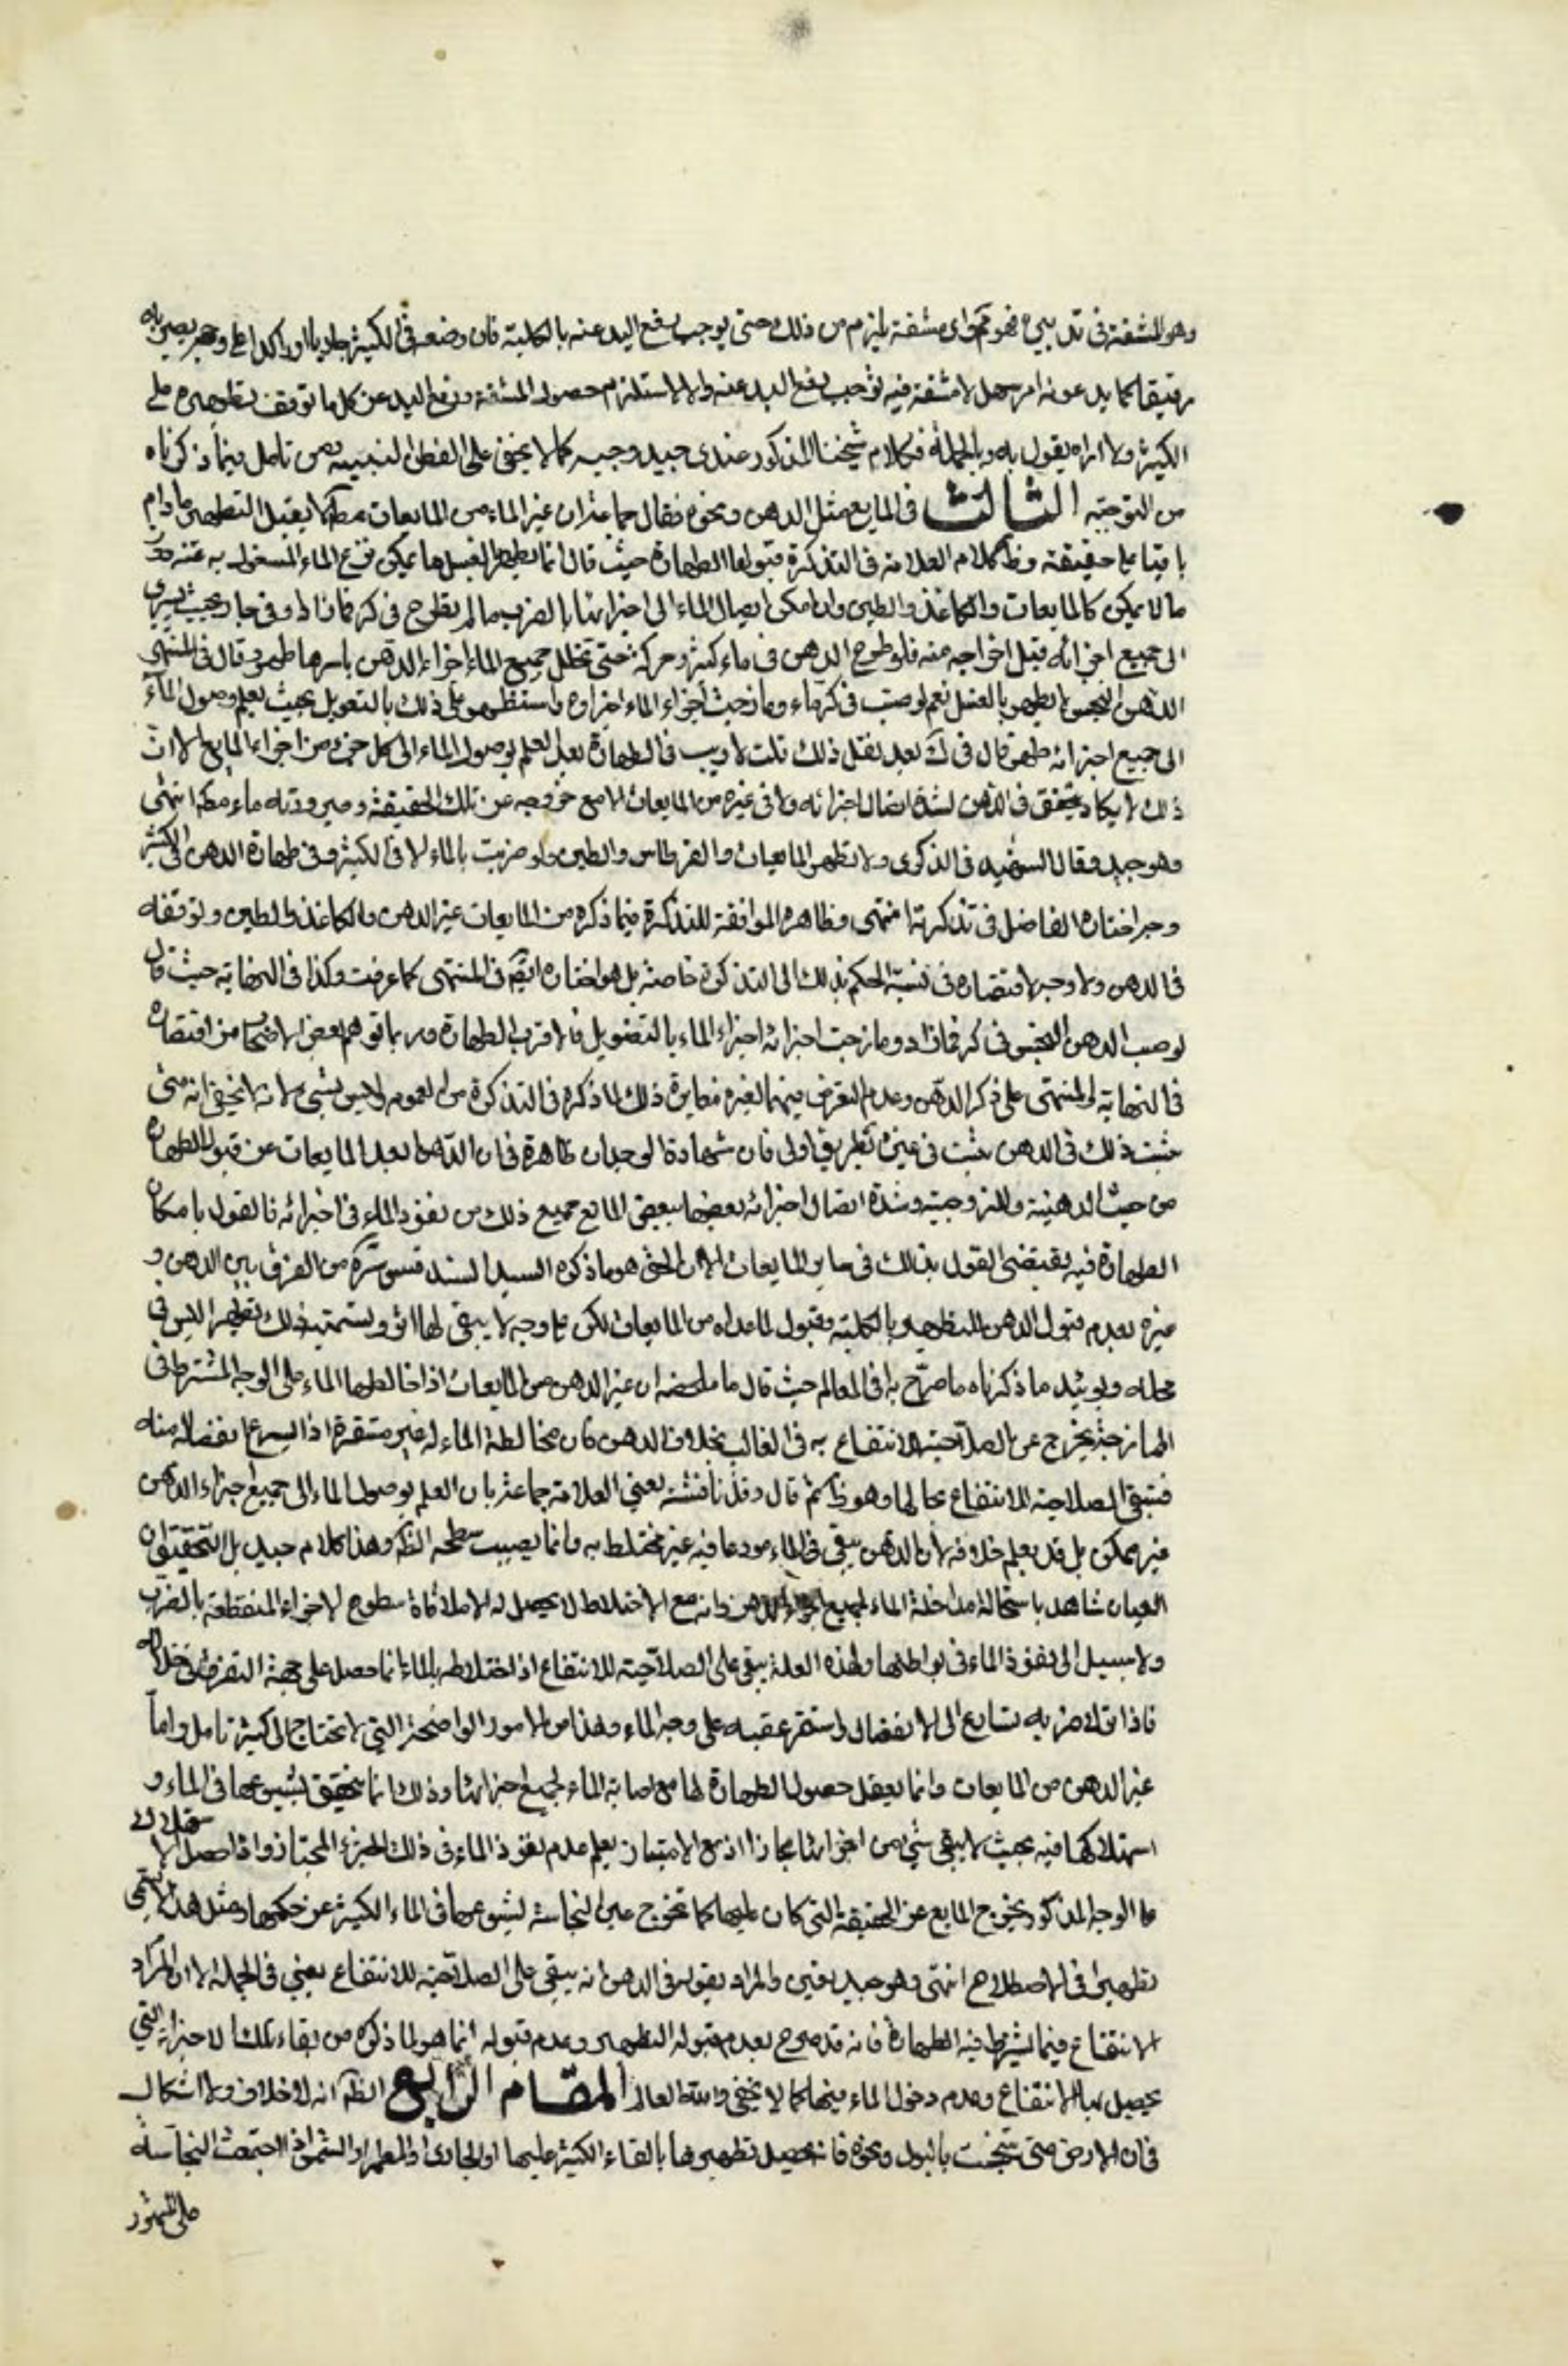 وهو المشقة في تدبيره فهو تم واى مشقة يلزم من ذلك حتى يوجب رفع اليد عنه بالكلية فان وضعه في الكثير جاريا او راكدا على وجه يصير به
رقيقا كما يدعونه امر سهل لا مشقة فيه توجب رفع اليد عنه والا لاستلزم حصول المشقة ورفع اليد عن كل ما توقف تطهيره على
الكثير ولا اراه يقول به وبالجملة فكلام شيخنا المذكور عندى جيد وجيه كما لا يخفى على الفطن النبيه ومن تامل فيما ذكرناه
من التوجيه الثالث في المايع مثل الدهن ونحوه فقال جماعة ان غير الماء من المايعات مطلقا لا يقبل التطهير ما دام
باقيا على حقيقته وظ كلام العلامة في التذكرة قبولها الطهارة حيث قال انما يطهر بالغسل ما يمكن نزع الماء المغسول به عنه دون
ما لا يمكن كالمايعات والكاغذ والطين وان امكن ايصال الماء الى اجزائها بالضرب ما لم يطرح في كر فما زاد او في جار بحيث يسرى
الى جميع اجزائه قبل اخراجه منه فلو طرح الدهن في ماء كثير وحركه حتى تخلل جميع الماء اجزاء الدهن باسرها طهر وقال في المنتهى
الدهن النجس لا يطهر بالغسل نعم لو صب في كر ماء ومازجت اجزاء الماء اجزاءه واستظهر على ذلك بالتصويل بحيث يعلم وصول الماء
الى جميع اجزائه طهر قال في ك بعد نقل ذلك قلت لا ريب في الطهارة بعد العلم بوصول الماء الى كل جزء من اجزاء المايع الا ان
ذلك لا يكاد يتحقق في الدهن لشدة اتصال اجزائه ولا في غيره من المايعات الا مع خروجه عن تلك الحقيقة وصيرورته ماء مطلقا انتهى
وهو جيد وقال الشهيد في الذكرى ولا تطهر المايعات والقرطاس والطين ولو ضربت بالماء الا في الكثير وفي طهارة الدهن في الكثير
وجه اختاره الفاضل في تذكرته انتهى وظاهره الموافقة للتذكرة فيما ذكره من المايعات غير الدهن والكاغذ والطين وتوقفه
في الدهن ولا وجه لاقتصاره في نسبة الحكم بذلك الى التذكرة خاصة بل هو اختاره ايضا في المنتهى كما عرفت وكذا في النهاية حيث قال
لو صب الدهن النجس في كر فما زاد ومازجت اجزائه اجزاء الماء بالتصويل فالاقرب الطهارة وربما توهم بعض الاصحاب من اقتصاره
في النهاية والمنتهى على ذكر الدهن وعدم التعرض فيهما لغيره مغايرة ذلك لما ذكره في التذكرة من العموم وليس بشئ لانه لا يخفى انه متى
ثبت ذلك في الدهن ثبت في غيره بطريق اولى فان شهادة الوجدان ظاهرة في ان الدهن ابعد المايعات عن قبول الطهارة
من حيث الدهنية واللزوجية وشدة اتصال اجزائه بعضها ببعض المانع جميع ذلك من نفوذ الماء في اجزائه فالقول بامكان
الطهارة فيه يقتضى القول بذلك في ساير المايعات الا ان الحق هو ما ذكره السيد السند قدس سره من الفرق بين الدهن و
غيره بعدم قبول الدهن للتطهير بالكلية وقبول ما عداه من المايعات لكن على وجه لا يبقى لها اثر وتسمية ذلك تطهيرا ليس في
محله ويؤيد ما ذكرناه ما صرح به في المعالم حيث قال ما ملخصه ان غير الدهن من المايعات اذا خالطها الماء على الوجه المشترط في
الممازجة يخرج عن الصلاحية للانتفاع به في الغالب بخلاف الدهن فان مخالطة الماء له غير مستقرة اذ السرعة انفصاله منه
فتبقى الصلاحية للانتفاع بحالها وهو ظ ثم قال وقد ناقشه يعني العلامة جماعة بان العلم بوصول الماء الى جميع اجزاء الدهن
غير ممكن بل قد يعلم خلافه لان الدهن يبقى في الماء مودعا فيه غير مختلط به وانما يصيب سطحه الظ وهذا كلام جيد بل التحقيق ان
العيان شاهد باستحالة مداخلة الماء لجميع اجزاء الدهن وانه مع الاختلاط لا يحصل له الا ملاقاة سطوح الاجزاء المنقطعة بالضرب
ولا سبيل الى نفوذ الماء في بواطنها ولهذه العلة يبقى على الصلاحية للانتفاع اذ اختلاطه بالماء انما حصل على جهة التفرق في خلاله
فاذا ترك ضربه تسارع الى الانفصال واستقر عقبه على وجه الماء وهذا من الامور الواضحة التي لا تحتاج الى كثير تامل واما
غير الدهن من المايعات وانما يعقل حصول الطهارة لها مع اصابة الماء لجميع اجزائها وذلك انما يتحقق بشيوعها في الماء و
استهلاكها فيه بحيث لا يبقى شئ من اجزائها ممتازا اذ مع الامتياز يعلم عدم نفوذ الماء في ذلك الجزء الممتاز واذا حصل الاستهلاك
على الوجه المذكور يخرج المايع عن الحقيقة التي كان عليها كما تخرج عين النجاسة بشيوعها في الماء الكثير عن حكمها ومثل هذا لا يسمى
تطهيرا في الاصطلاح انتهى وهو جيد متين والمراد بقوله في الدهن انه يبقى على الصلاحية للانتفاع يعني في الجملة لا ان المراد
الانتفاع فيما يشترط فيه الطهارة فانه قد صرح بعدم قبوله التطهير وعدم قبوله انما هو لما ذكره من بقاء تلك الاجزاء التي
يحصل بها الانتفاع وعدم دخول الماء فيها كما لا يخفى والله العالم المقام الرابع الظ انه لا خلاف ولا اشكال
في ان الارض متى نجست بالبول ونحوه فانه يحصل تطهيرها بالقاء الكثير عليها او الجارى او المطر او الشمس اذا جففت النجاسة
على المشهور